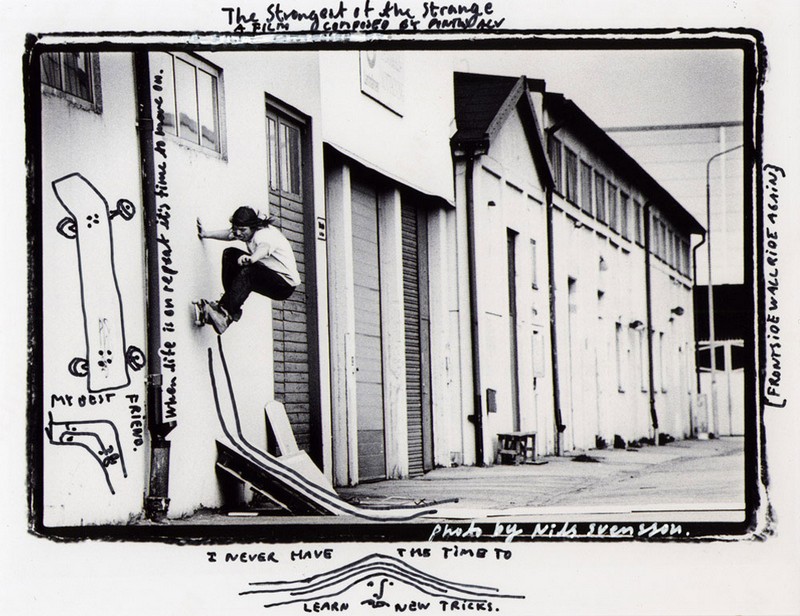 The Strongest of the Strange
A FILM COMPOSED BY PONTUS ALV
When life is on repeat it's time to move on.
MY BEST
FRIEND.
[FRONTSIDEWALLRIDE AGAIN]
Photo by Nils Svensson.
I NEVER HAVE THE TIME TO
LEARN NEW TRICKS.